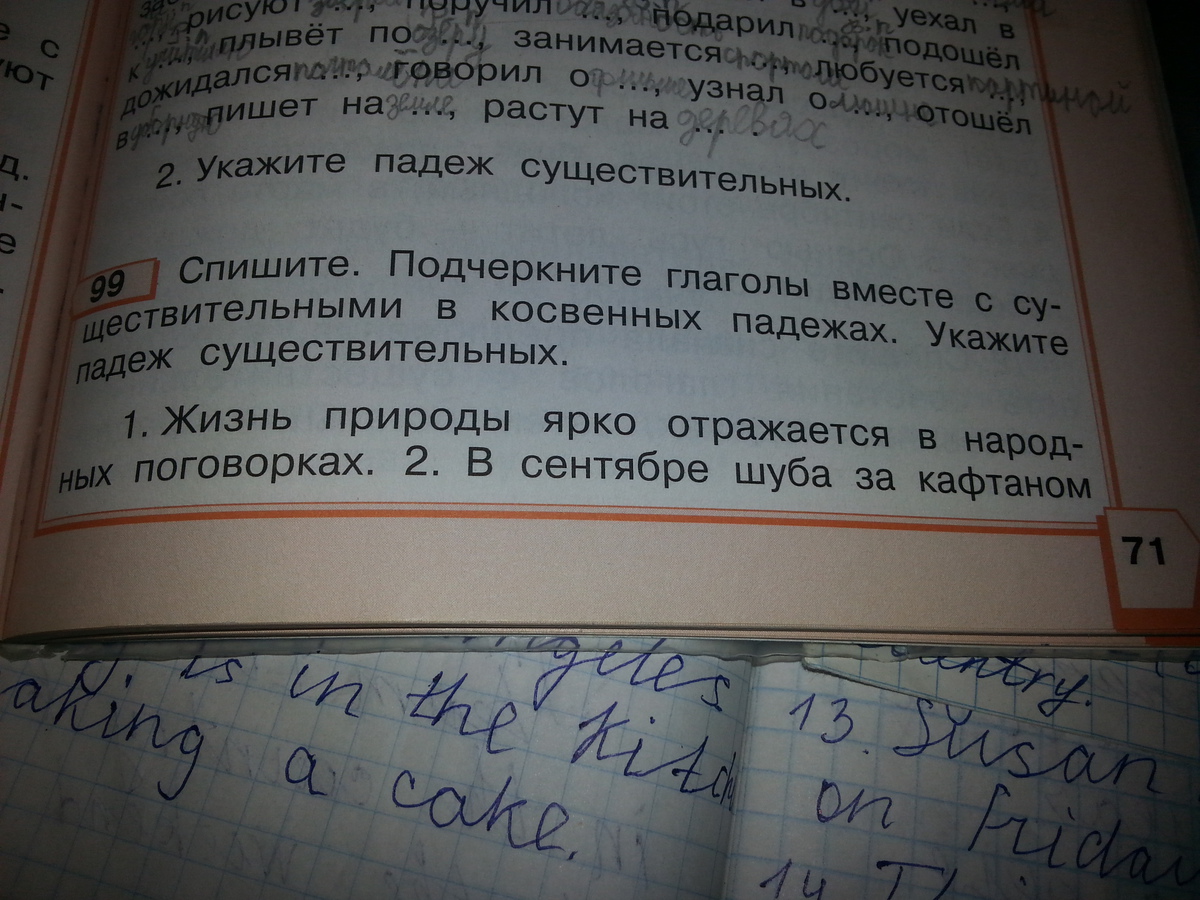 рисуют ..., поручил ..., подарил ..., подошёл
уехал в
к ..., плывёт по ..., занимается ..., любуется ...,
дожидался ..., говорил о ..., узнал о ..., отошёл
картиной
в ..., пишет на ..., растут на ... .
земле
деревях
2. Укажите падеж существительных.
99 Спишите. Подчеркните глаголы вместе с су-
ществительными в косвенных падежах. Укажите
падеж существительных.
1. Жизнь природы ярко отражается в народ-
ных поговорках. 2. В сентябре шуба за кафтаном
71
е с
уют
д.
е
is in the kitch
aking a cake.
ntry.
13. Susan
on frida
14. Th